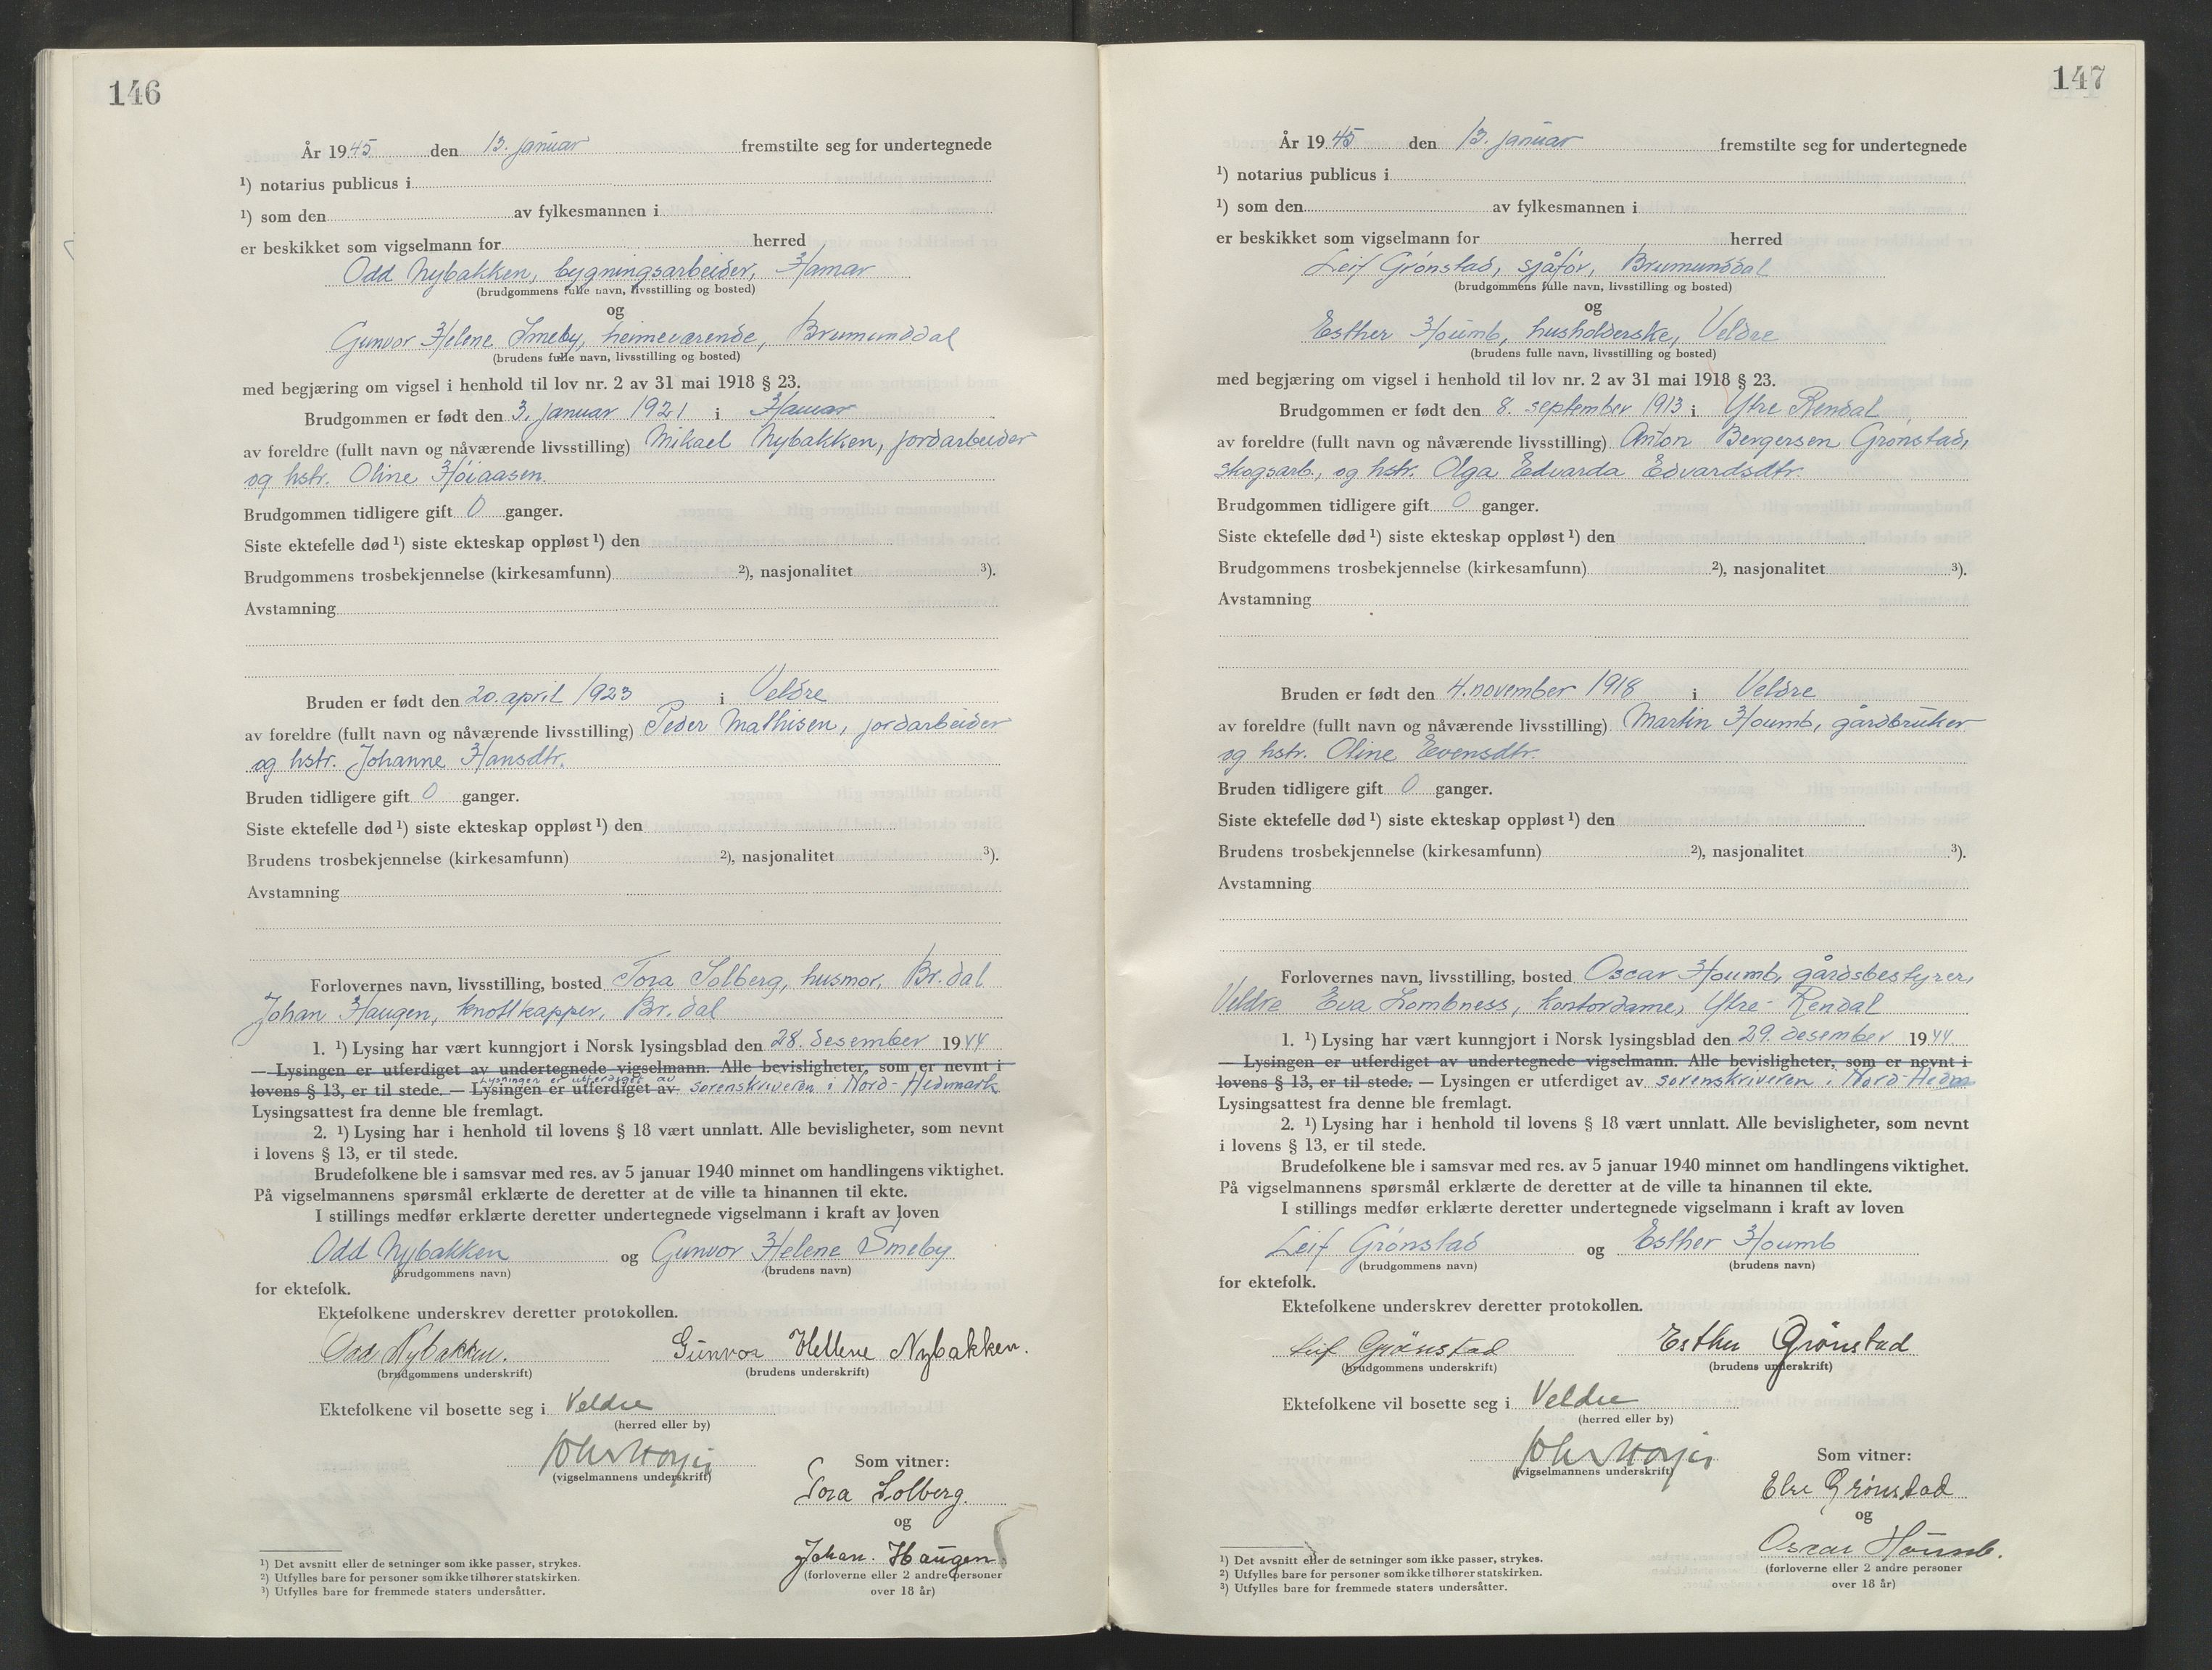 146
År 1945 den 13. januar fremstilte seg for undertegnede
¹) notarius publicus i
¹) som den av fylkesmannen i
er beskikket som vigselmann for herred
Odd Nybakken, bygningsarbeider, Hamar
(brudgommens fulle navn, livsstilling og bosted)
og
Gunvor Helene Smeby, heimeværende, Brumunddal
(brudens fulle navn, livsstilling og bosted)
med begjæring om vigsel i henhold til lov nr. 2 av 31 mai 1918 § 23.
Brudgommen er født den 3. januar 1921 i Hamar
av foreldre (fullt navn og nåværende livsstilling) Mikael Nybakken, jordarbeider
og hstr. Oline Høiaasen.
Brudgommen tidligere gift 0 ganger.
Siste ektefelle død ¹) siste ekteskap oppløst ¹) den
Brudgommens trosbekjennelse (kirkesamfunn) ²), nasjonalitet ³).
Avstamning
Bruden er født den 20. april 1923 i Veldre
av foreldre (fullt navn og nåværende livsstilling) Peder Mathisen, jordarbeider
og hstr. Johanne Hansdtr.
Bruden tidligere gift 0 ganger.
Siste ektefelle død ¹) siste ekteskap oppløst ¹) den
Brudens trosbekjennelse (kirkesamfunn) ²), nasjonalitet ³).
Avstamning
Forlovernes navn, livsstilling, bosted Tora Solberg, husmor, Br.dal
Johan Haugen, knottkapper, Br.dal
1. ¹) Lysing har vært kunngjort i Norsk lysingsblad den 28. desember 1944
— Lysingen er utferdiget av undertegnede vigselmann. Alle bevisligheter, som er nevnt i
Lysningen er utferdiget av
lovens § 13, er til stede. — Lysingen er utferdiget av sorenskriveren i Nord-Hedmark
Lysingsattest fra denne ble fremlagt.
2. ¹) Lysing har i henhold til lovens § 18 vært unnlatt. Alle bevisligheter, som nevnt
i lovens § 13, er til stede.
Brudefolkene ble i samsvar med res. av 5 januar 1940 minnet om handlingens viktighet.
På vigselmannens spørsmål erklærte de deretter at de ville ta hinannen til ekte.
I stillings medfør erklærte deretter undertegnede vigselmann i kraft av loven
Odd Nybakken og Gunvor Helene Smeby
(brudgommens navn) (brudens navn)
for ektefolk.
Ektefolkene underskrev deretter protokollen.
Odd Nybakken. Gunvor Hellene Nybakken.
(brudgommens underskrift) (brudens underskrift)
Ektefolkene vil bosette seg i Veldre
(herred eller by)
(vigselmannens underskrift)
Som vitner:
Tora Solberg.
og
Johan. Haugen
(forloverne eller 2 andre personer
over 18 år)
¹) Det avsnitt eller de setninger som ikke passer, strykes.
²) Utfylles bare for personer som ikke tilhører statskirken.
³) Utfylles bare for fremmede staters undersåtter.
147
År 1945 den 13. januar fremstilte seg for undertegnede
¹) notarius publicus i
¹) som den av fylkesmannen i
er beskikket som vigselmann for herred
Leif Grønstad, sjåfør, Brumunddal
(brudgommens fulle navn, livsstilling og bosted)
og
Esther Houmb, husholderske, Veldre
(brudens fulle navn, livsstilling og bosted)
med begjæring om vigsel i henhold til lov nr. 2 av 31 mai 1918 § 23.
Brudgommen er født den 8. september 1913 i Ytre Rendal
av foreldre (fullt navn og nåværende livsstilling) Anton Bergersen Grønstad,
skogsarb., og hstr. Olga Edvarda Edvardsdtr.
Brudgommen tidligere gift 0 ganger.
Siste ektefelle død ¹) siste ekteskap oppløst ¹) den
Brudgommens trosbekjennelse (kirkesamfunn) ²), nasjonalitet ³).
Avstamning
Bruden er født den 4. november 1918 i Veldre
av foreldre (fullt navn og nåværende livsstilling) Martin Houmb, gårdbruker
og hstr. Oline Evensdtr.
Bruden tidligere gift 0 ganger.
Siste ektefelle død ¹) siste ekteskap oppløst ¹) den
Brudens trosbekjennelse (kirkesamfunn) ²), nasjonalitet ³).
Avstamning
Forlovernes navn, livsstilling, bosted Oscar Houmb, gårdsbestyrer,
Veldre Eva Lombness, kontordame, Ytre-Rendal
1. ¹) Lysing har vært kunngjort i Norsk lysingsblad den 29. desember 1944
— Lysingen er utferdiget av undertegnede vigselmann. Alle bevisligheter, som er nevnt i
lovens § 13, er til stede. — Lysingen er utferdiget av sorenskriveren i Nord-Hedm
Lysingsattest fra denne ble fremlagt.
2. ¹) Lysing har i henhold til lovens § 18 vært unnlatt. Alle bevisligheter, som nevnt
i lovens § 13, er til stede.
Brudefolkene ble i samsvar med res. av 5 januar 1940 minnet om handlingens viktighet.
På vigselmannens spørsmål erklærte de deretter at de ville ta hinannen til ekte.
I stillings medfør erklærte deretter undertegnede vigselmann i kraft av loven
Leif Grønstad og Esther Houmb
(brudgommens navn) (brudens navn)
for ektefolk.
Ektefolkene underskrev deretter protokollen.
Leif Grönstad Esther Grönstad
(brudgommens underskrift) (brudens underskrift)
Ektefolkene vil bosette seg i Veldre
(herred eller by)
(vigselmannens underskrift)
Som vitner:
Grønstad
og
Oscar Houmb.
(forloverne eller 2 andre personer
over 18 år)
¹) Det avsnitt eller de setninger som ikke passer, strykes.
²) Utfylles bare for personer som ikke tilhører statskirken.
³) Utfylles bare for fremmede staters undersåtter.